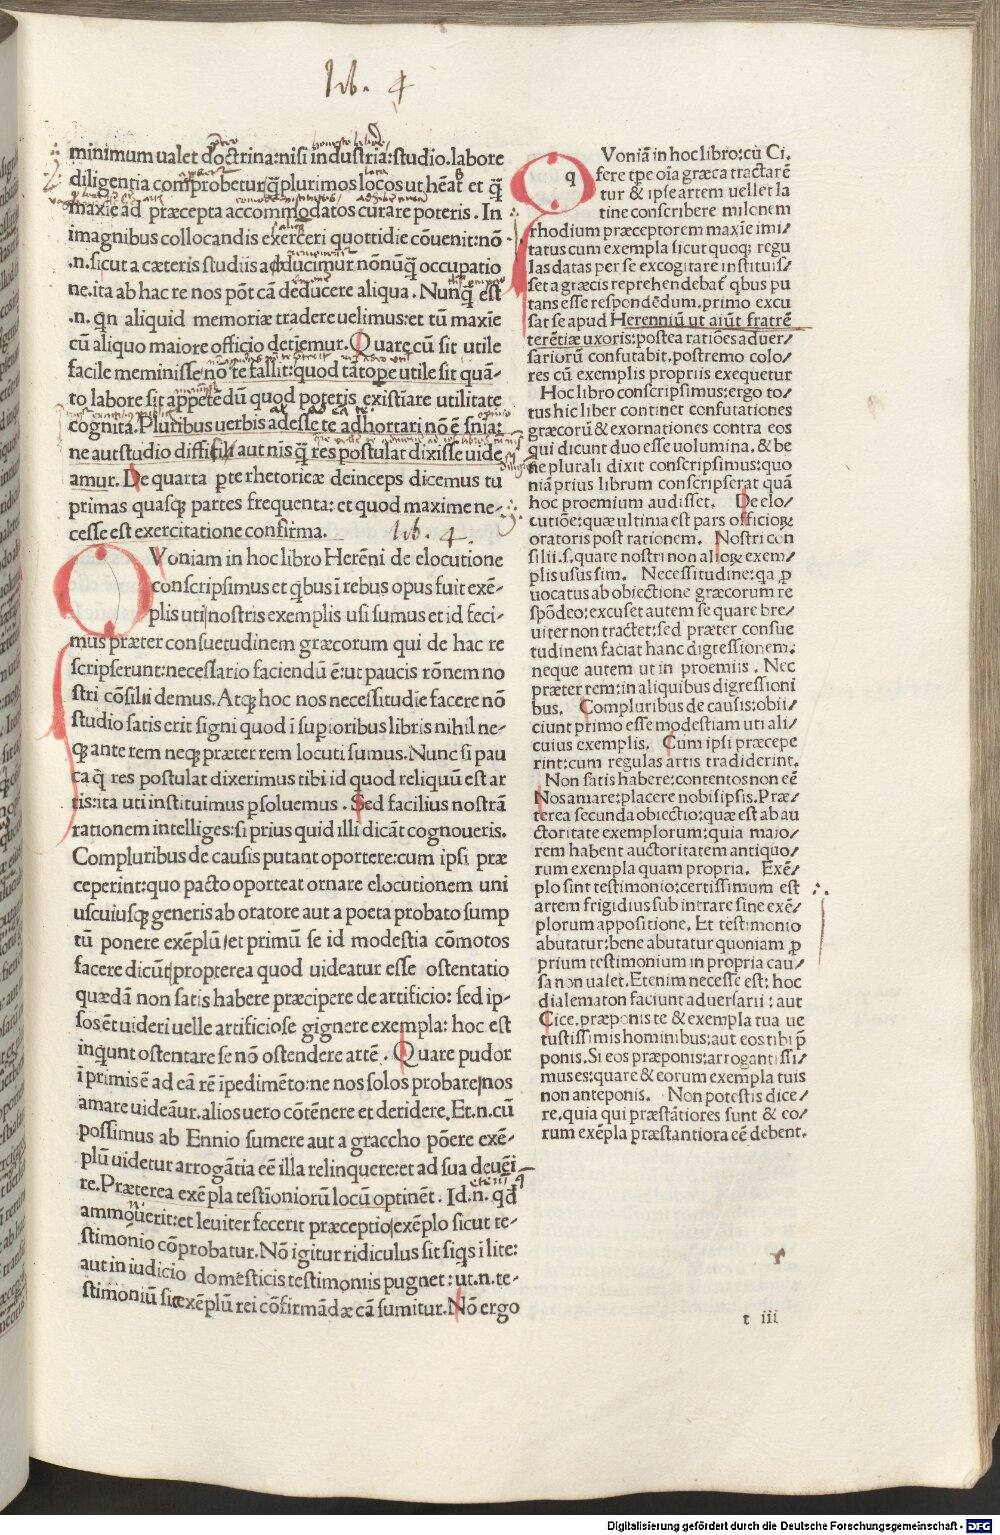 lib. 4
minimum ualet doctrina:nisi industria:studio.labore
diligentia comprobetur q̃ plurimos locos ut hẽat et q̃
maxĩe ad præcepta accommodatos curare poteris. In
imagnibus collocandis exerceri quottidie cõuenit:nõ
.n. sicut a cæteris studiis adducimur nõnũq̃ occupatio
ne.ita ab hac re nos põt cã deducere aliqua. Nunq̃ est
.n. qn aliquid memoriæ tradere uelimus:et tũ maxĩe
cũ aliquo maiore officio detiemur. Quare cũ sit utile
facile meminisse nõ te fallit:quod tãtope utile sit quã-
to labore sit appetẽdũ quod poteris existĩare utilitate
cognita. Pluribus uerbis ad esse te adhortari nõ ẽ snĩa:
ne aut studio diffisi aut nis q̃ res postulat dixisse uide
amur. De quarta pte rhetoricæ deinceps dicemus tu
primas quasq; partes frequenta: et quod maxime ne-
cesse est exercitatione confirma.
lib. 4.
Voniam in hoc libro Herẽni de elocutione
conscripsimus et q̃bus ĩ rebus opus fuit exẽ-
plis uti nostris exemplis usi sumus et id feci-
mus præter consuetudinem græcorum qui de hac re
scripserunt:necessario faciendũ ẽ:ut paucis rõnem no
stri cõsilii demus. Atq; hoc nos necessitudie facere nõ
studio satis erit signi quod ĩ supioribus libris nihil ne-
q; ante rem neq; præter rem locuti sumus. Nunc si pau
ca q̃ res postulat dixerimus tibi id quod reliquũ est ar
tis:ita uti instituimus psoluemus. Sed facilius nostrã
rationem intelliges:si prius quid illi dicãt cognoueris.
Compluribus de causis putant oportere:cum ipsi præ
ceperint:quo pacto oporteat ornare elocutionem uni
uscuiusq; generis ab oratore aut a poeta probato sump
tũ ponere exẽplũ/et primũ se id modestia cõmotos
facere dicũt propterea quod uideatur esse ostentatio
quædã non satis habere præcipere de artificio: sed ip-
sos ẽt uideri uelle artificiose gignere exempla: hoc est
inqunt ostentare se nõ ostendere artẽ. Quare pudor
ĩ primis ẽ ad eã rẽ ĩpedimẽto:ne nos solos probare/nos
amare uideãur.alios uero cõtẽnere et deridere. Et.n.cũ
possimus ab Ennio sumere aut a graccho põere exẽ-
plũ uidetur arrogãtia eẽ illa relinquere:et ad sua deuẽi
re. Præterea exẽpla testĩoniorũ locũ optinẽt. Id.n. qd
ammouerit:et leuiter fecerit præceptio/exẽplo sicut te-
stimonio cõprobatur. Nõ igitur ridiculus sit siqs ĩ lite:
aut in iudicio domesticis testimoniis pugnet: ut.n.te-
stimoniũ sic exẽplũ rei cõfirmãdæ cã sumitur. Nõ ergo
q
Voniã in hoc libro:cũ Ci.
fere tpe oĩa græca tractarẽ
tur & ipse artem uellet la
tine conscribere milonem
rhodium præceptorem maxĩe imi/
tatus cum exempla sicut quoq; regu
las datas per se excogitare instituis/
set a græcis reprehendebat̃ qbus pu
tans esse respondẽdum. primo excu
sat se apud Herenniũ ut aiũt fratrẽ
terẽtiæ uxoris: postea ratiões aduer/
sariorũ confutabit. postremo colo/
res cũ exemplis propriis exequetur
Hoc libro conscripsimus: ergo to/
tus hic liber continet confutationes
græcorũ & exornationes contra eos
qui dicunt duo esse uolumina. & be
ne plurali dixit conscripsimus: quo
niã prius librum conscripserat quã
hoc proemium audisset. De elo/
cutiõe: quæ ultima est pars officioꝝ
oratoris post rationem. Nostri con
silii.s.quare nostri non alioꝝ exem/
plis usus sim. Necessitudine:qa p
uocatus ab obiectione græcorum re
spõdeo: excuset autem se quare bre/
uiter non tractet: sed præter consue
tudinem faciat hanc digressionem.
neque autem ut in proemiis. Nec
præter rem: in aliquibus digressioni
bus. Compluribus de causis: obii/
ciunt primo esse modestiam uti ali/
cuius exemplis. Cum ipsi præcepe
rint: cum regulas artis tradiderint.
Non satis habere: contentos non eẽ
Nos amare: placere nobis ipsis. Præ/
terea secunda obiectio: quæ est ab au
ctoritate exemplorum: quia maio/
rem habent auctoritatem antiquo/
rum exempla quam propria. Exẽ/
plo sint testimonio: certissimum est
artem frigidius sub intrare sine exẽ/
plorum appositione. Et testimonio
abutatur: bene abutatur quoniam p
prium testimonium in propria cau/
sa non ualet. Etenim necesse est: hoc
dialematon faciunt aduersarii: aut
Cice. præponis te & exempla tua ue
tustissimis hominibus: aut eos tibi p̃
ponis. Si eos præponis: arrogantissi/
mus es: quare & eorum exempla tuis
non anteponis. Non potestis dice/
re. quia qui præstãtiores sunt & eo/
rum exẽpla præstantiora eẽ debent.
t iii
Digitalisierung gefördert durch die Deutsche Forschungsgemeinschaft - DFG